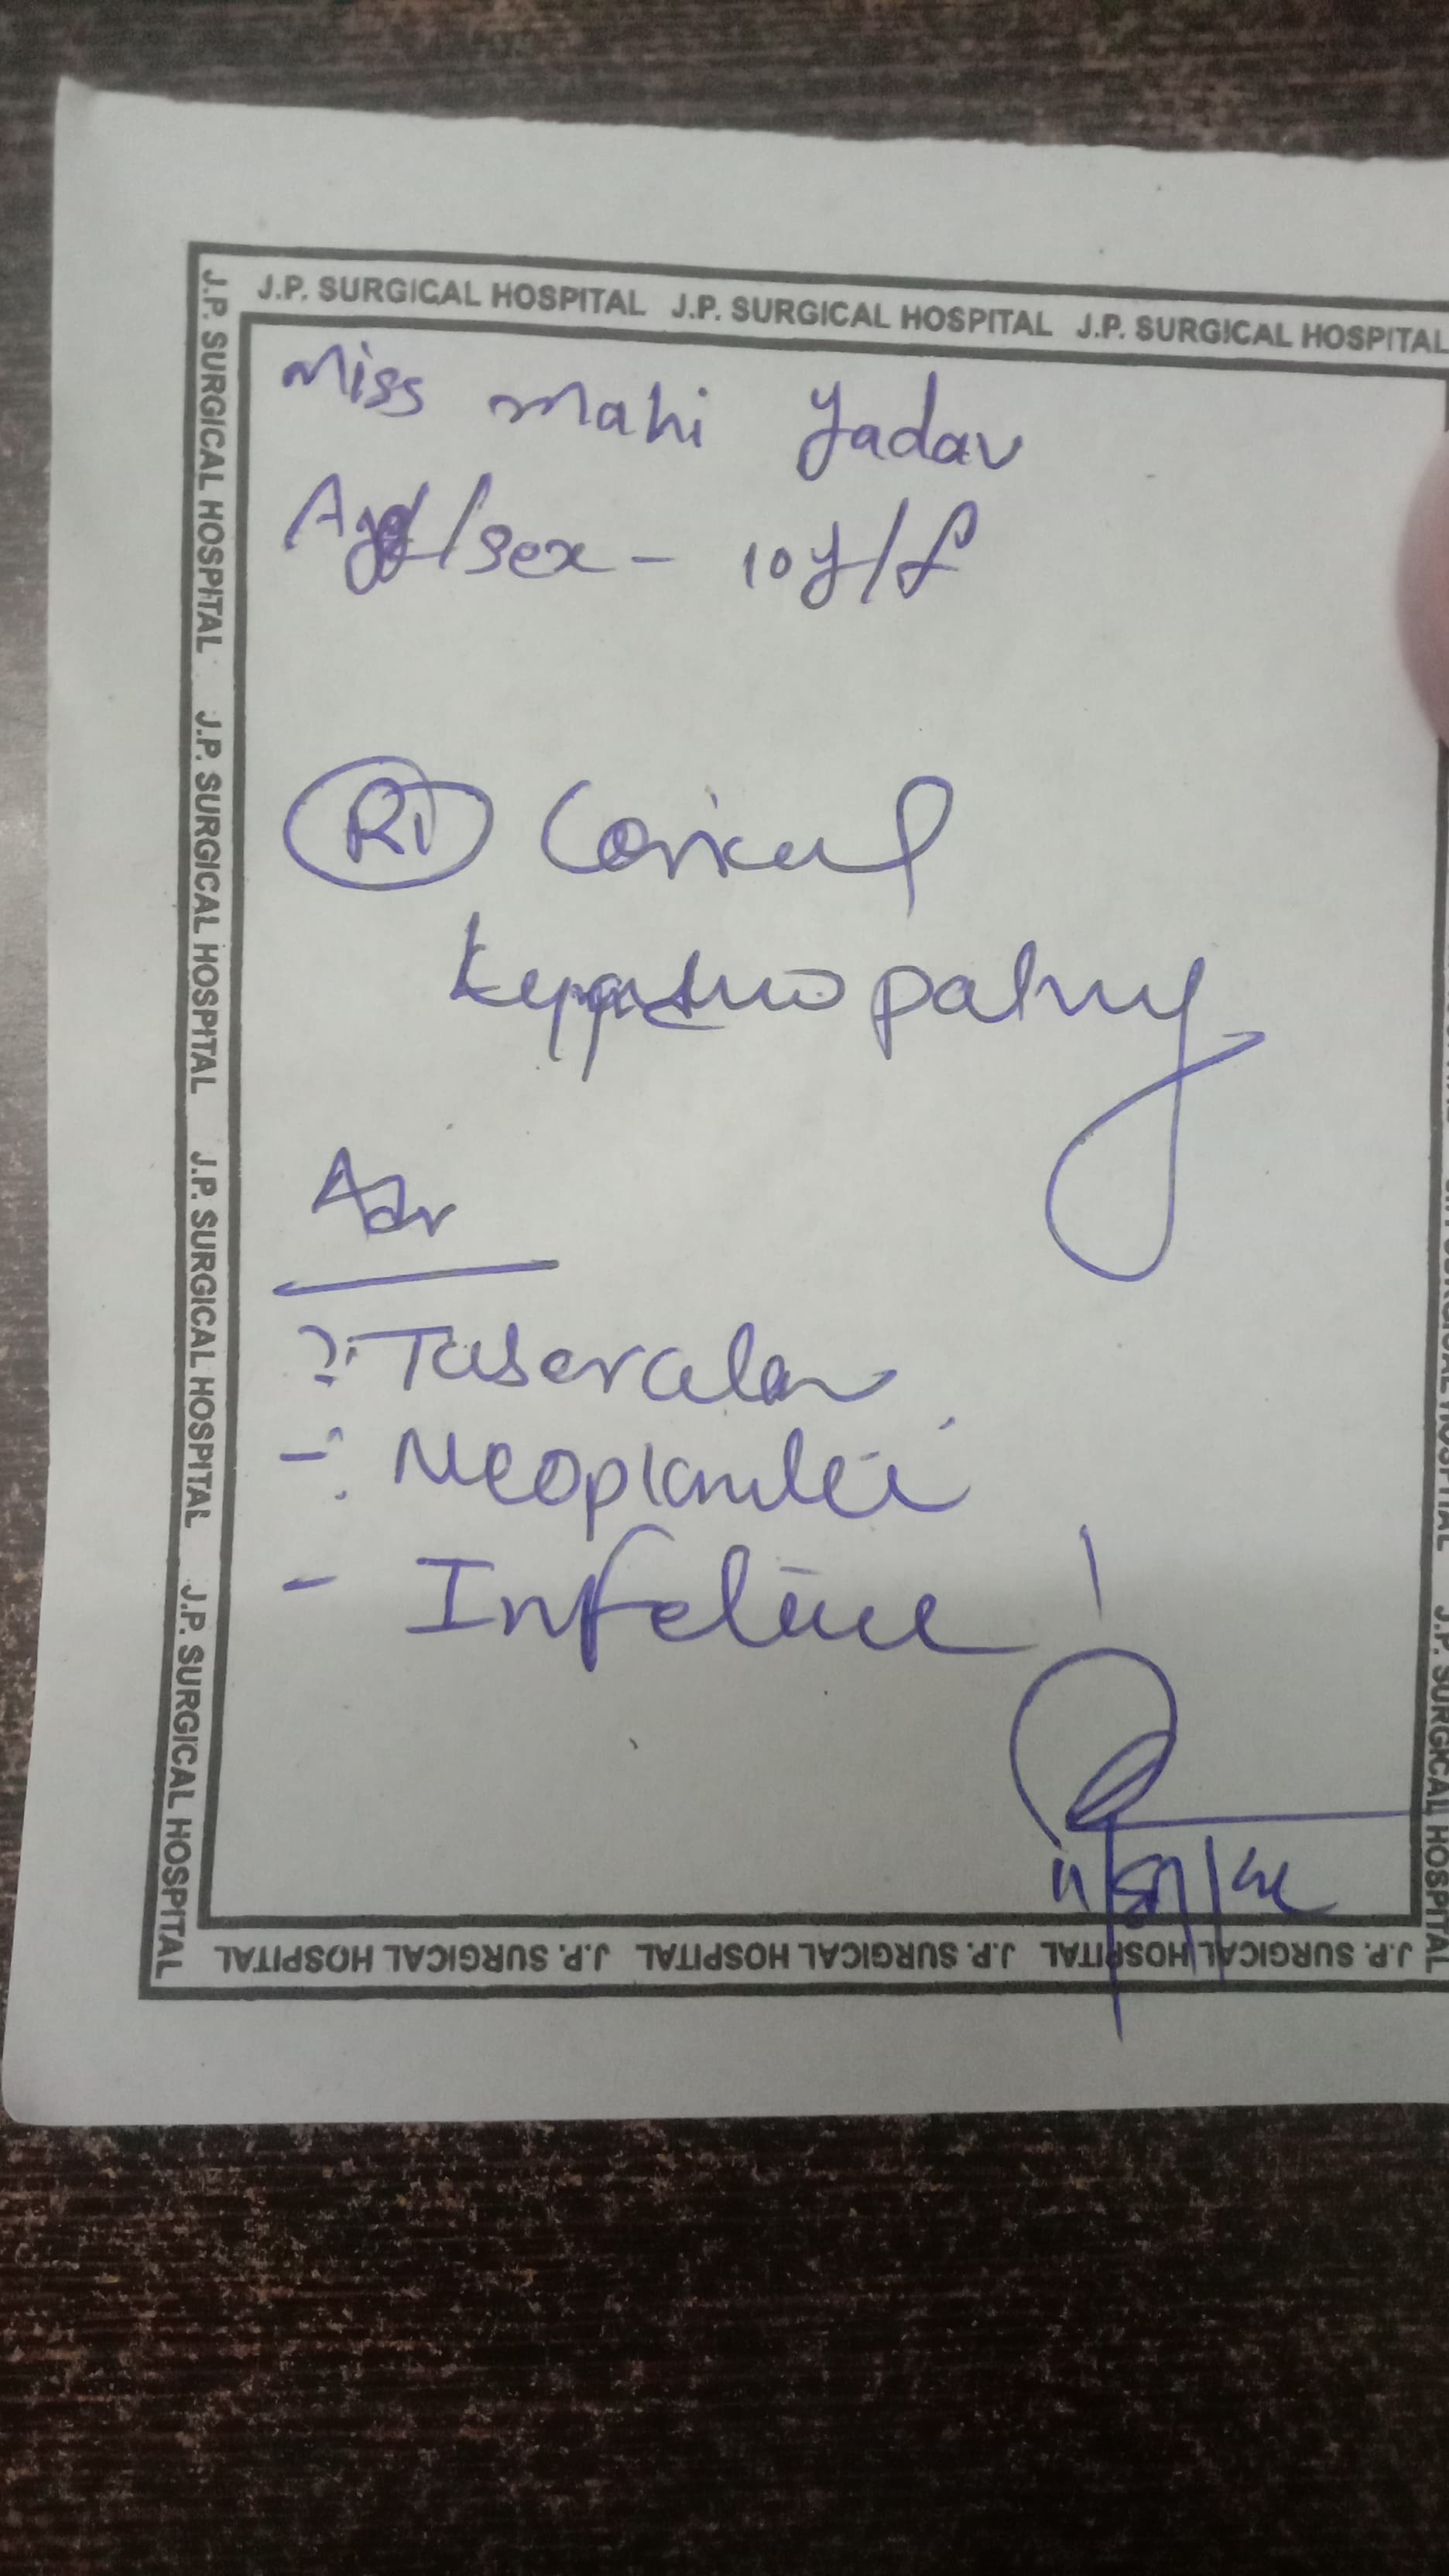 J.P. SURGICAL HOSPITAL J.P. SURGICAL HOSPITAL J.P. SURGICAL HOSPITAL
Miss Mahi Yadav
Age/sex - 10y/f
RT Cervical
Lymphadenopathy
Adv
? Tubercular
- Neoplastic
- Infective
J.P. SURGICAL HOSPITAL J.P. SURGICAL HOSPITAL J.P. SURGICAL HOSPITAL
J.P. SURGICAL HOSPITAL J.P. SURGICAL HOSPITAL J.P. SURGICAL HOSPITAL J.P. SURGICAL HOSPITAL